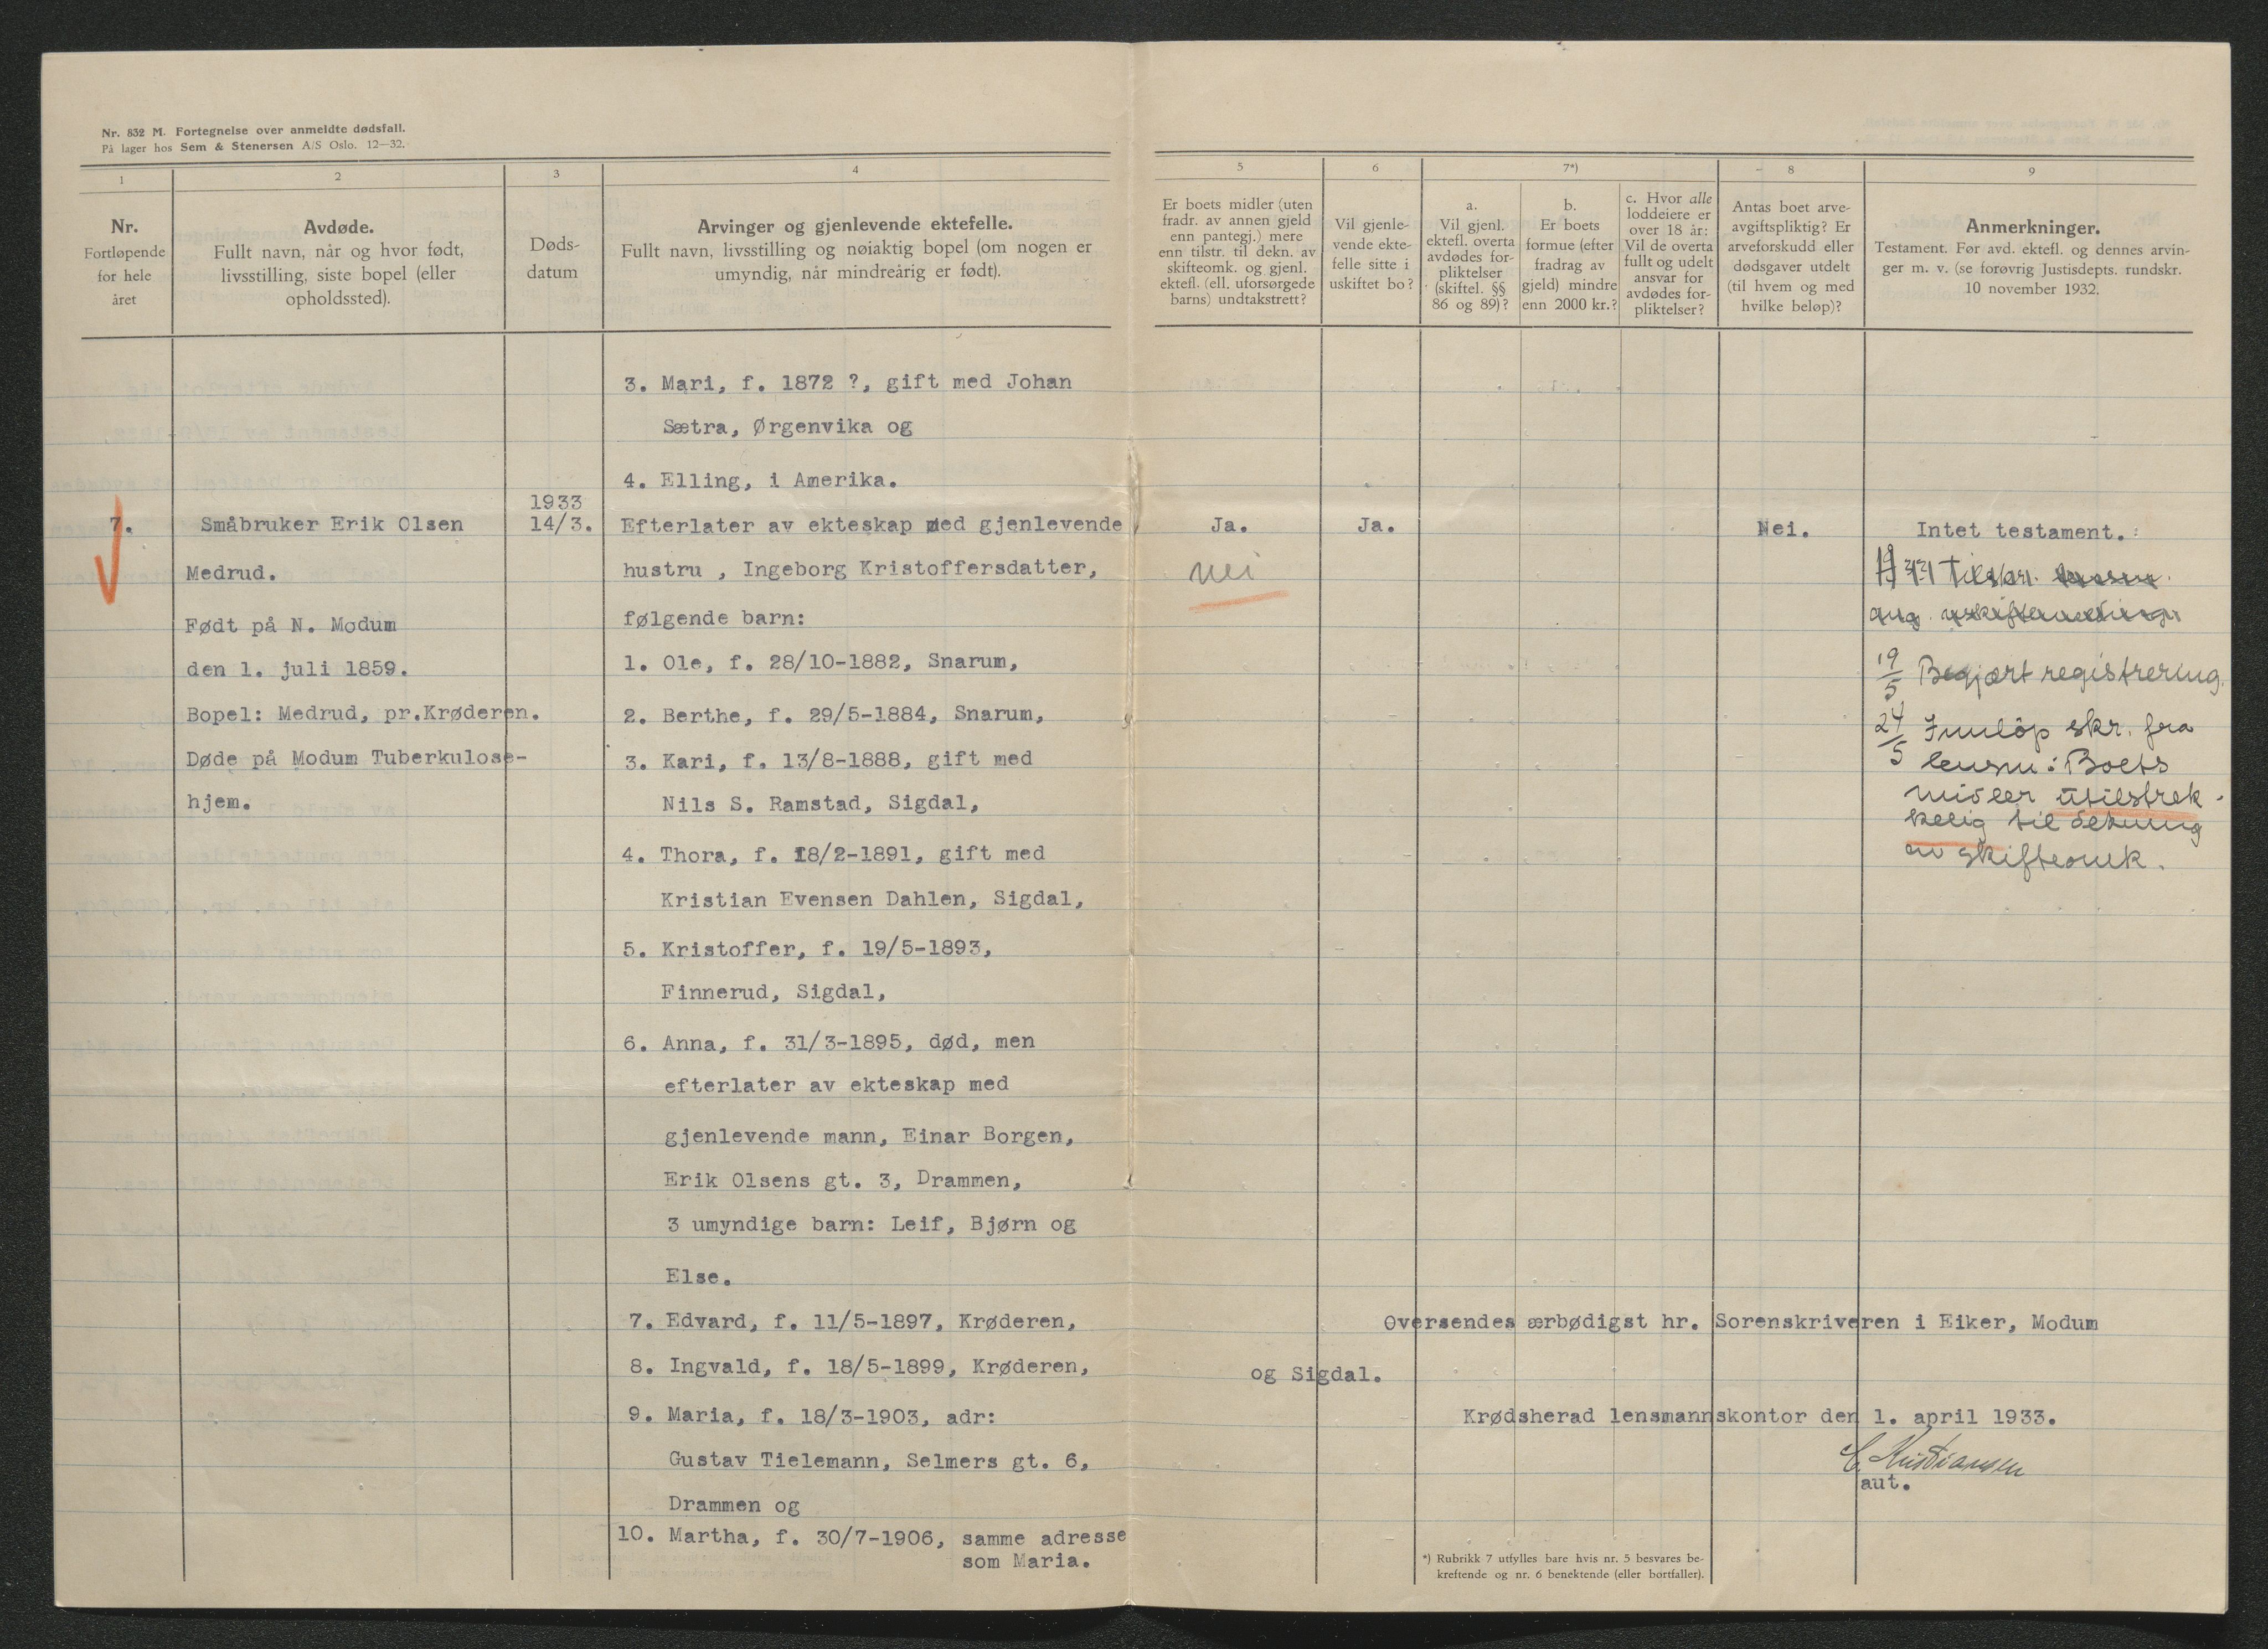 Nr. 832 M. Fortegnelse over anmeldte dødsfall.
På lager hos Sem & Stenersen A/S Oslo. 12—32.
1
Nr.
Fortløpende
for hele
året
2
Avdøde.
Fullt navn, når og hvor født,
livsstilling, siste bopel (eller
opholdssted).
3
Døds-
datum
4
Arvinger og gjenlevende ektefelle.
Fullt navn, livsstilling og nøiaktig bopel (om nogen er
umyndig, når mindreårig er født).
5
Er boets midler (uten
fradr. av annen gjeld
enn pantegj.) mere
enn tilstr. til dekn. av
skifteomk. og gjenl.
ektefl. (ell. uforsørgede
barns) undtakstrett?
6
Vil gjenle-
vende ekte-
felle sitte i
uskiftet bo?
7*)
a.
Vil gjenl.
ektefl. overta
avdødes for-
pliktelser
(skiftel. §§
86 og 89)?
b.
Er boets
formue (efter
fradrag av
gjeld) mindre
enn 2000 kr.?
c. Hvor alle
loddeiere er
over 18 år:
Vil de overta
fullt og udelt
ansvar for
avdødes for-
pliktelser?
8
Antas boet arve-
avgiftspliktig? Er
arveforskudd eller
dødsgaver utdelt
(til hvem og med
hvilke beløp)?
9
Anmerkninger.
Testament. Før avd. ektefl. og dennes arvin-
ger m. v. (se forøvrig Justisdepts. rundskr.
10 november 1932.
3. Mari, f. 1872 ?, gift med Johan
Sætra, Ørgenvika og
4. Elling, i Amerika.
7.
Småbruker Erik Olsen
Medrud.
Født på N. Modum
den 1. juli 1859.
Bopel: Medrud, pr.Krøderen.
Døde på Modum Tuberkulose-
hjem.
1933
14/3.
Efterlater av ekteskap med gjenlevende
hustru , Ingeborg Kristoffersdatter,
følgende barn:
1. Ole, f. 28/10-1882, Snarum,
2. Berthe, f. 29/5-1884, Snarum,
3. Kari, f. 13/8-1888, gift med
Nils S. Ramstad, Sigdal,
4. Thora, f. 18/2-1891, gift med
Kristian Evensen Dahlen, Sigdal,
5. Kristoffer, f. 19/5-1893,
Finnerud, Sigdal,
6. Anna, f. 31/3-1895, død, men
efterlater av ekteskap med
gjenlevende mann, Einar Borgen,
Erik Olsens gt. 3, Drammen,
3 umyndige barn: Leif, Bjørn og
Else.
7. Edvard, f. 11/5-1897, Krøderen,
8. Ingvald, f. 18/5-1899, Krøderen,
9. Maria, f. 18/3-1903, adr:
Gustav Tielemann, Selmers gt. 6,
Drammen og
10. Martha, f. 30/7-1906, samme adresse
som Maria.
Ja.
nei
Ja.
Nei.
Intet testament.
Tilskr.
ang.
19/5 Begjært registrering.
24/5 Innløp skr. fra
lensm: Boets
midler utilstrek-
kelig til dekning
av skifteomk.
Oversendes ærbødigst hr. Sorenskriveren i Eiker, Modum
og Sigdal.
Krødsherad lensmannskontor den 1. april 1933.
C. Kristiansen
aut.
*) Rubrikk 7 utfylles bare hvis nr. 5 besvares be-
kreftende og nr. 6 benektende (eller bortfaller).